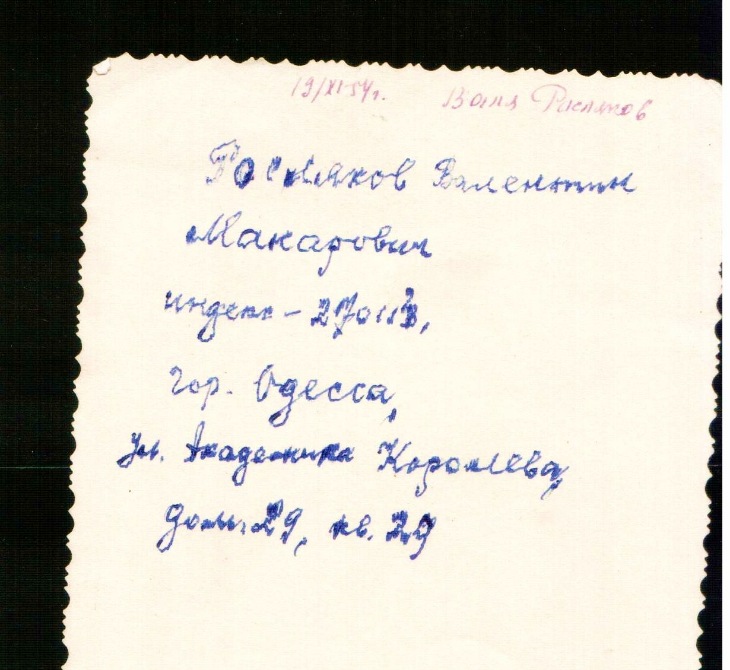 19/XI-54г. Валя Росляков
Росляков Валентин
Макарович
индекс - 270113,
гор. Одесса,
ул. Академика Королёва,
дом. 29, кв. 29